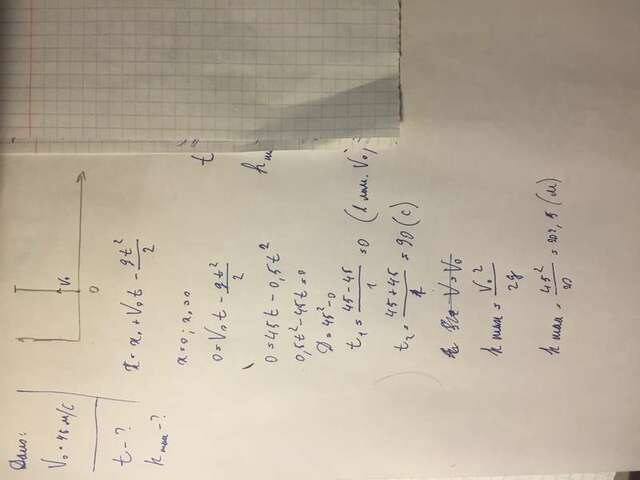 Дано:
V₀ = 45 м/с
t - ?
h max - ?
V₀
0
x = x₀ + V₀t - gt²/2
x = 0; x₀ = 0
0 = V₀t - gt²/2
0 = 45t - 0,5t²
0,5t² - 45t = 0
D = 45² - 0
t₁ = 45 - 45/1 = 0 V₀
t₂ = 45 + 45/1 = 90 (с)
V = V₀
h max = V₀²/2g
h max = 45²/20 = 202,5 (м)
t =
h m